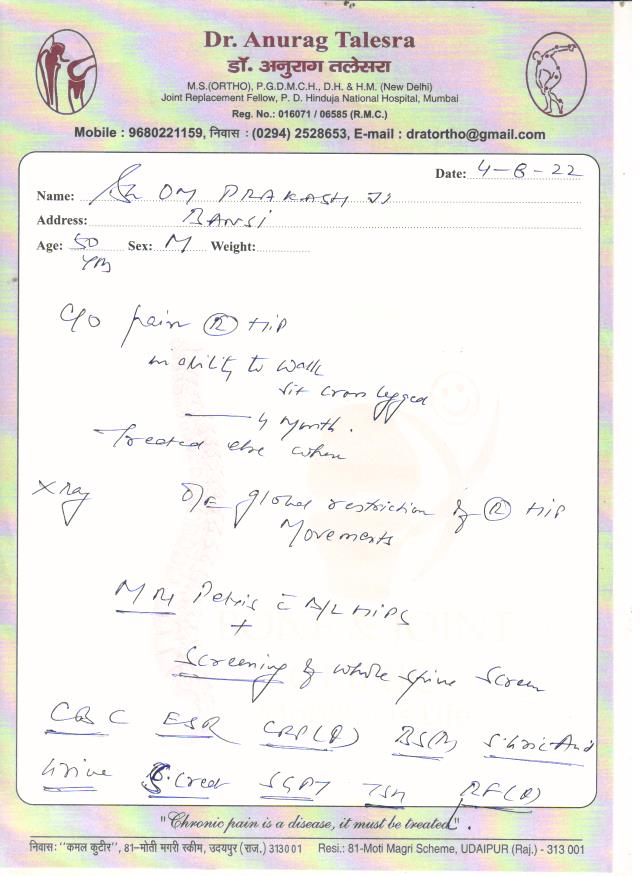 Dr. Anurag Talesra
डॉ. अनुराग तलेसरा
M.S.(ORTHO), P.G.D.M.C.H., D.H. & H.M. (New Delhi)
Joint Replacement Fellow, P. D. Hinduja National Hospital, Mumbai
Reg. No.: 016071 / 06585 (R.M.C.)
Mobile : 9680221159, निवास : (0294) 2528653, E-mail : dratortho@gmail.com
Date: 4-8-22
Name: Sh OM PRAKASH JI
Address: BANSI
Age: 50 Sex: M Weight:
Yrs
C/o pain (R) HIP
inability to walk
sit cross legged
4 Month.
Treated else where
X ray O/E global restriction of (R) HIP
Movements
MRI Pelvis c B/L HIPS
+
Screening of whole spine screen
CBC ESR CRP(Q) BS(R) S. Uric Acid
Urine S. Creat SGPT TSH RF(Q)
"Chronic pain is a disease, it must be treated".
निवास: "कमल कुटीर", 81-मोती मगरी स्कीम, उदयपुर (राज.) 313001 Resi.: 81-Moti Magri Scheme, UDAIPUR (Raj.) - 313 001